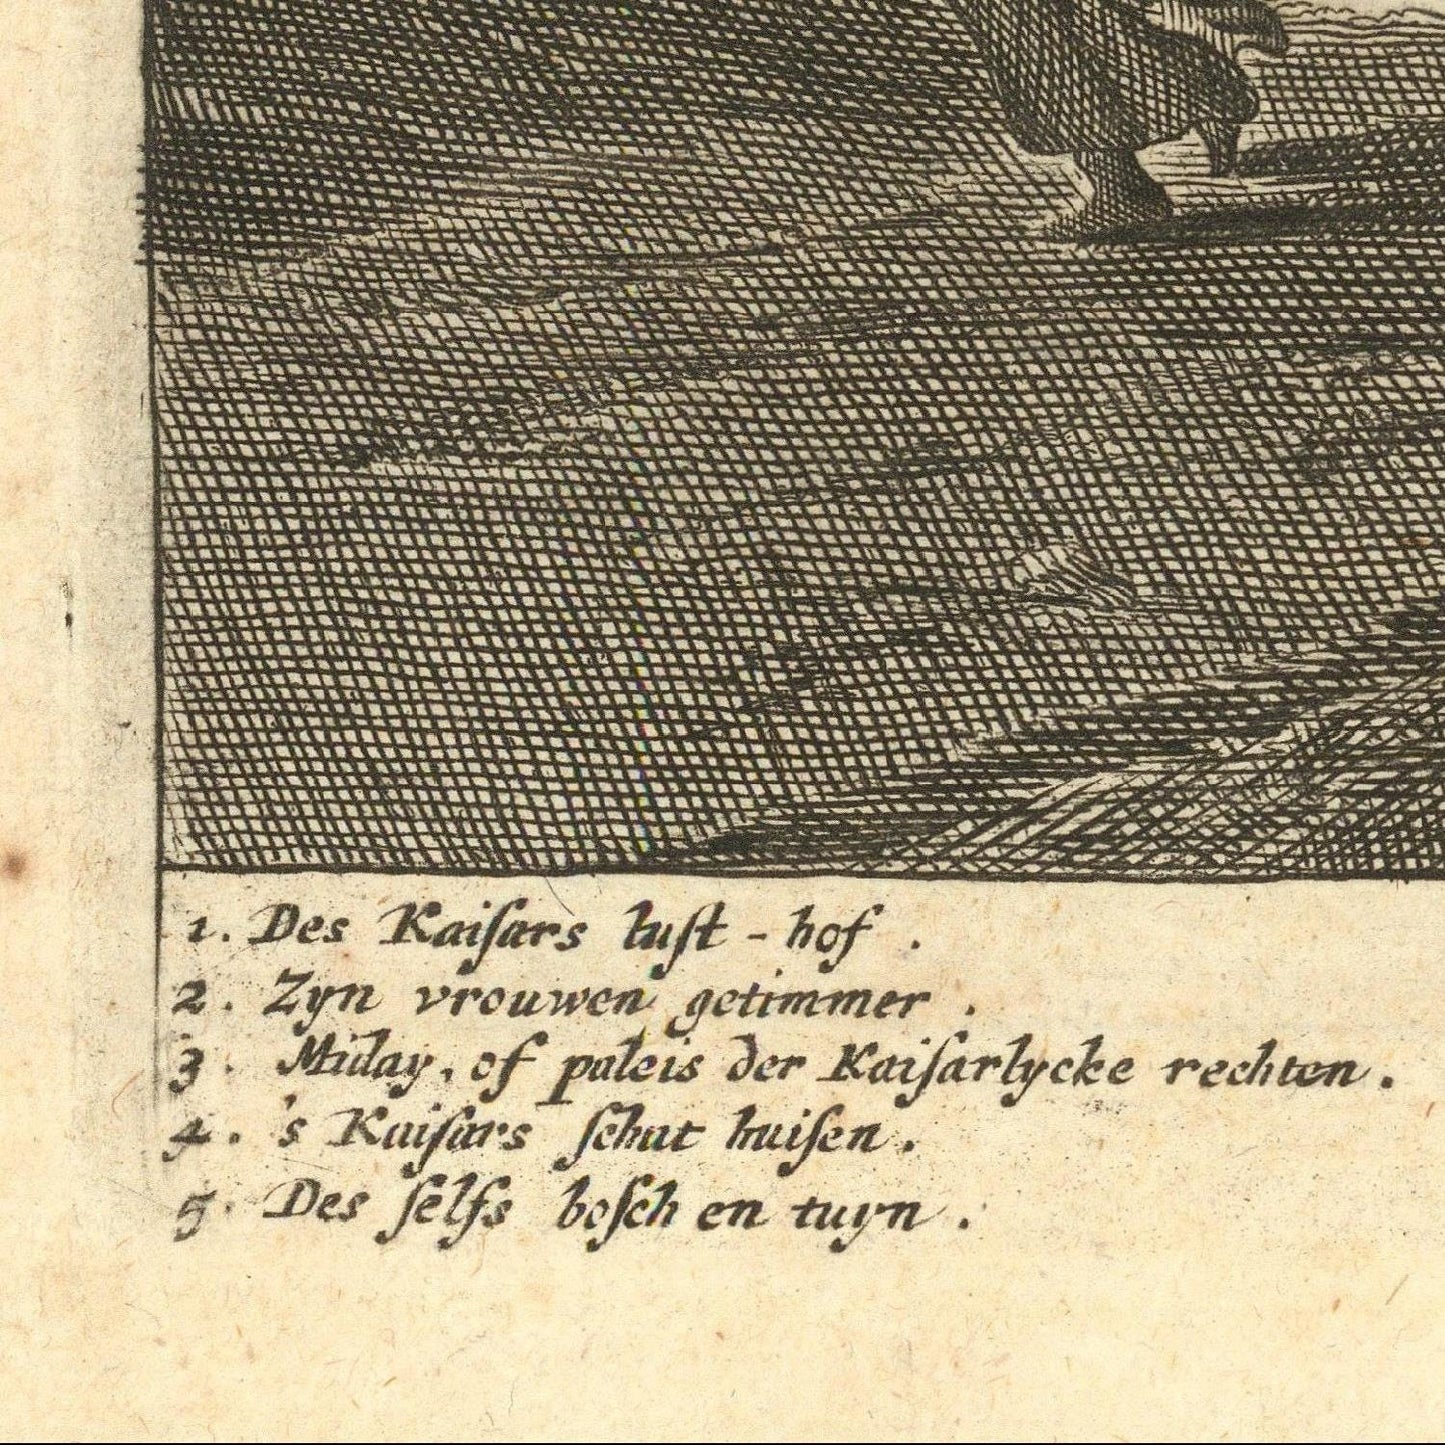 1. Des Kaiſars luſt-hof.
2. Zyn vrouwen getimmer.
3. Miday, of paleis der Kaiſarlycke rechten.
4. 's Kaiſars ſchat huiſen.
5. Des ſelfs boſch en tuyn.